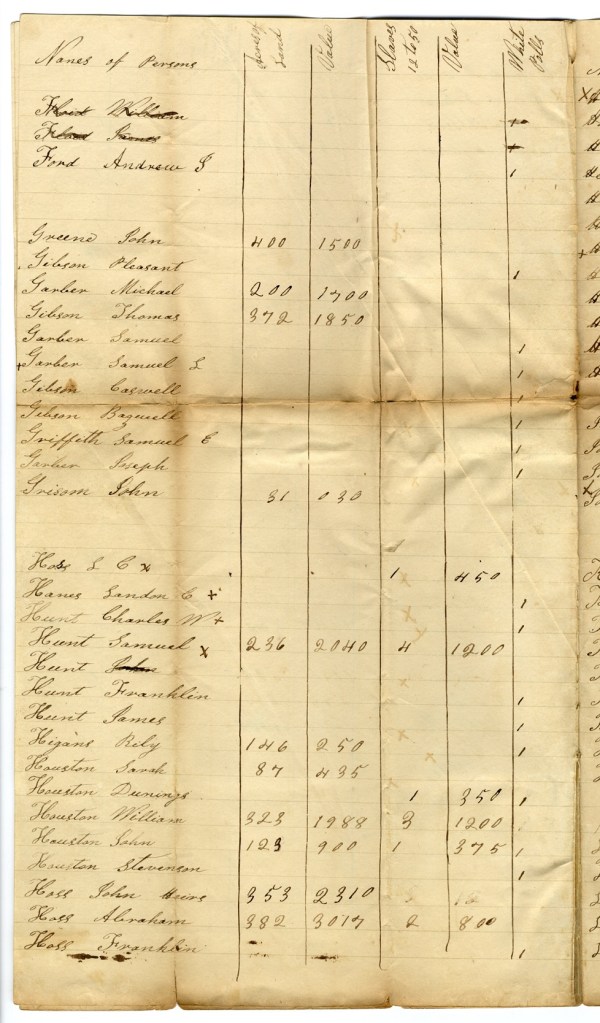 Names of Persons Land Value Slaves 12 to 50 Value White Polls
Ford Andrew J 1
Greene John 400 1500
Gibson Pleasant 1
Garber Michael 200 1700
Gibson Thomas 372 1850
Garber Samuel 1
+ Garber Samuel L 1
Gibson Caswell 1
Gibson Bagwell 1
Griffeth Samuel E 1
Garber Joseph 1
Grisom John 31 030
Hoss L C x 1 450
Hanes Landon C + 1
Hunt Charles W + 1
Hunt Samuel x 236 2040 4 1200
Hunt
Hunt Franklin 1
Hunt James 1
Higans Rily 146 250 1
Houston Sarah 87 435
Houston Dunings 1 350 1
Houston William 323 1988 3 1200
Houston John 123 900 1 375 1
Houston Stevenson 1
Hoss John Heirs 353 2310
Hoss Abraham 382 3017 2 800
Hoss Franklin 1